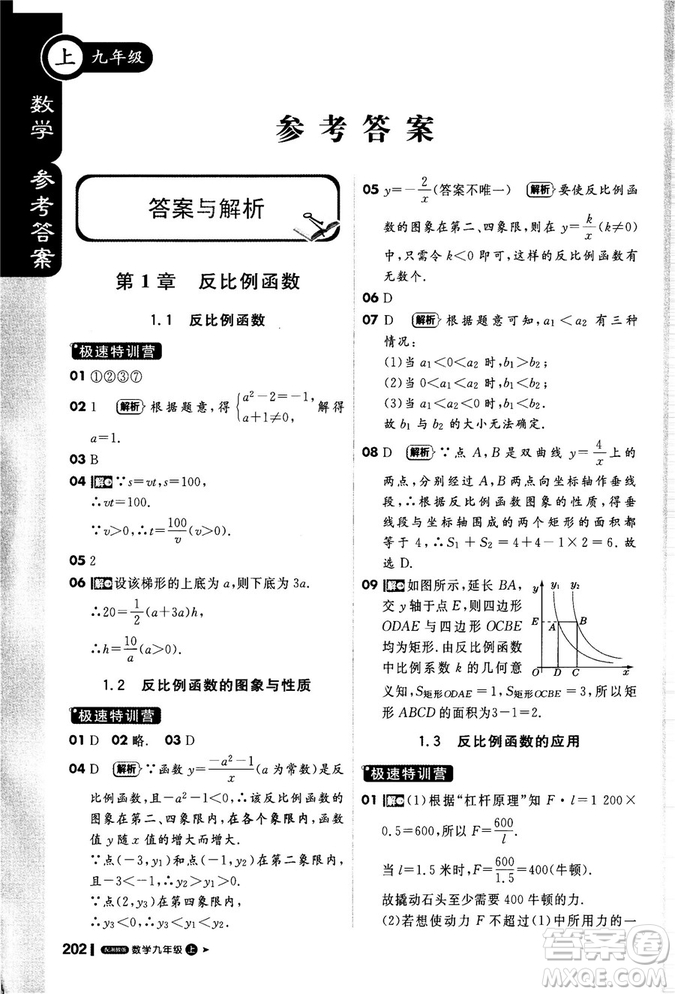 上 九年级
数学 参考答案
参考答案
答案与解析
第1章 反比例函数
1.1 反比例函数
极速特训营
01 ①②③⑦
02 1 解析 根据题意,得{a²-2=-1, a+1≠0,
a=1.
03 B
04 解 ∵s=vt,s=100,
∴vt=100.
∵v>0,∴t=100/v(v>0).
05 2
06 解 设该梯形的上底为a,则下底为3a.
∴20=1/2(a+3a)h,
∴h=10/a(a>0).
1.2 反比例函数的图象与性质
极速特训营
01 D 02 略. 03 D
04 D 解析 ∵函数y=(-a²-1)/x(a为常数)是反
比例函数,-a²-1<0,∴该反比例函数的图
象在第二、四象限,并且在每个象限内,
函数y随x值的增大而增大.
∵点(-3,y₁)与点(-1,y₂)在第二象限内,
-3<-1,∴0<y₁<y₂.
∵点(2,y₃)在第四象限内,
∴y₃<0.∴y₃<y₁<y₂.故选D.
05 y=-2/x(答案不唯一) 解析 要使反比例函
数的图象在第二、四象限,则在y=k/x(k≠0)
中,只需令k<0即可,这样的反比例函数有
无数个.
06 D
07 D 解析 根据题意可知,a₁<a₂有三种
情况:
(1)当a₁<0<a₂时,b₁>b₂;
(2)当a₁<a₂<0时,b₁<b₂;
(3)当0<a₁<a₂时,b₁<b₂.
故b₁与b₂的大小无法确定.
08 D 解析 ∵点A,B是双曲线y=4/x上的
两点,分别经过A,B两点向坐标轴作垂线
段,∴根据反比例函数图象的性质,得垂
线段与坐标轴围成的两个矩形的面积都
等于4,∴S₁+S₂=4+4-1×2=6.故
选D.
09 解 如图所示,延长BA,
交y轴于点E,则四边形
ODAE与四边形OCBE
均为矩形.由反比例函数
中比例系数k的几何意
义知,S矩形ODAE=1,S矩形OCBE=3,所以矩
形ABCD的面积为3-1=2.
y
y
E
A
B
O
D
C
x
1.3 反比例函数的应用
极速特训营
01 解 (1)根据“杠杆原理”知F·l=1 200×
0.5=600,所以F=600/l.
当l=1.5米时,F=600/1.5=400(牛顿).
故撬动石头至少需要400牛顿的力.
(2)若想使动力F不超过(1)题中所用力的一
202 配湘教版 数学九年级 上
答案圈
MXQE.COM